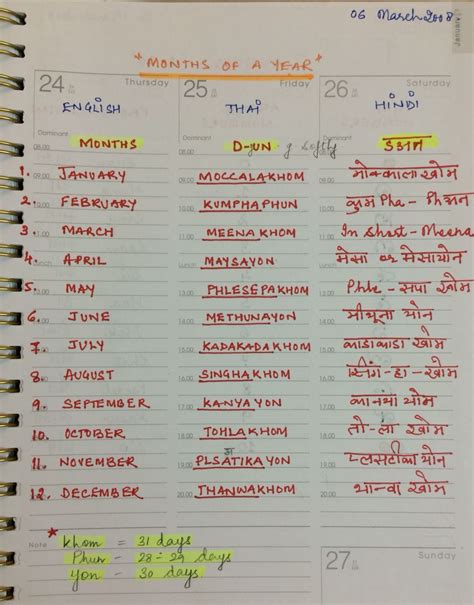 06 March 2008
January
"MONTHS OF A YEAR"
24 Thursday 25 Friday 26 Saturday
ENGLISH THAI HINDI
Dominant Dominant Dominant
08.00 MONTHS 08.00 D-JUN g softly 08.00
09.00 1. JANUARY 09.00 MOCCALAKHOM 09.00 मोक्काला खोम
2. FEBRUARY KUMPHAPHUN कुम Pha -
3. MARCH MEENAKHOM In Short - Meena
4. APRIL MAYSAYON मेसा or मेसायोन
5. MAY PHLESEPAKHOM Phle - सपा खोम
6. JUNE METHUNAYON मीथूना योन
7. JULY KADAKADAKHOM काडाकाडा खोम
8. AUGUST SINGHAKHOM सिंग - हा - खोम
9. SEPTEMBER KANYAYON कानया योम
10. OCTOBER TOHLAKHOM तो-ला खोम
11. NOVEMBER PLSATIKAYON प्लसटीका योन
12. DECEMBER THANWAKHOM थान्वा खोम
Note * Khom = 31 days
Phun - 28 - 29 days
Yon - 30 days
27 Sunday